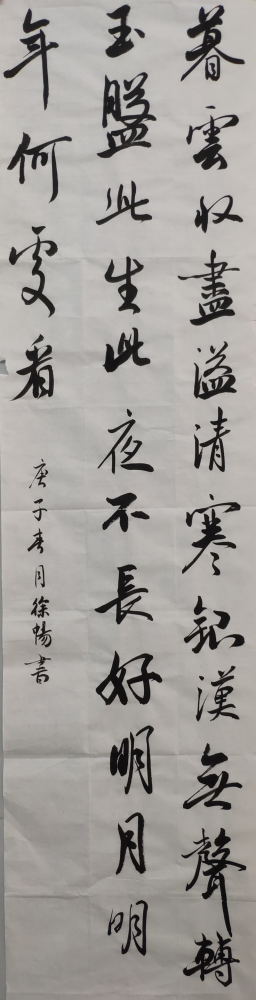 暮雲收盡溢清寒銀漢無聲轉
玉盤此生此夜不長好明月明
年何處看
庚子春月徐暢書